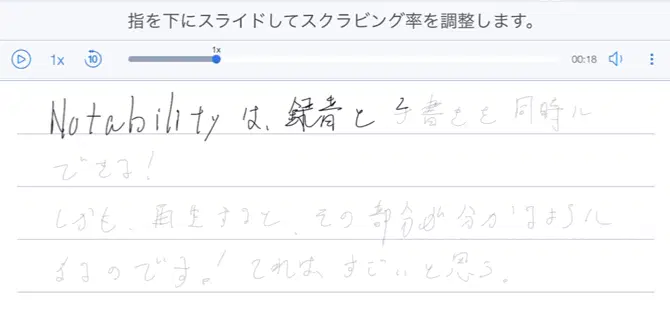 指を下にスライドしてスクラビング率を調整します。
1x
1x 10 00:18
Notabilityは、録音と手書きを同時に
できる!
しかも、再生すると、その部分が分かるように
なるのです。! これは、すごいと思う。